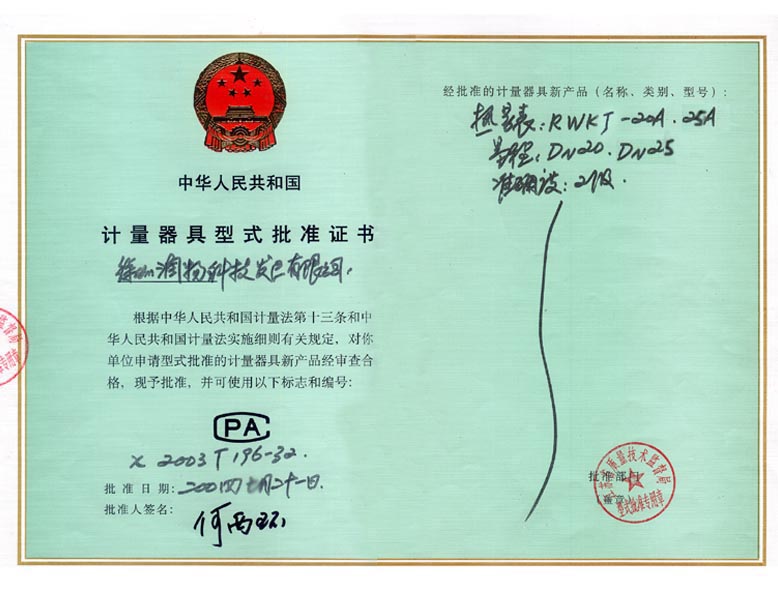 中华人民共和国
计量器具型式批准证书
徐州润物科技发展有限公司:
根据中华人民共和国计量法第十三条和中
华人民共和国计量法实施细则有关规定，对你
单位申请型式批准的计量器具新产品经审查合
格，现予批准，并可使用以下标志和编号:
PA
2003T196-32.
批准日期:
批准人签名:
经批准的计量器具新产品（名称、类别、型号）:
热量表: RWKJ-20A. 25A
量程: DN20. DN25
准确度: 2级.
批准部门
（盖章）
质量技术监督局
型式批准专用章